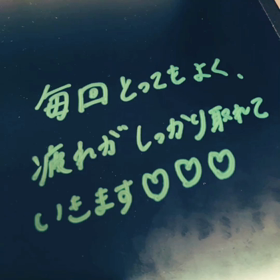 毎回とってもよく、
疲れがしっかり取れて
いきます♡♡♡